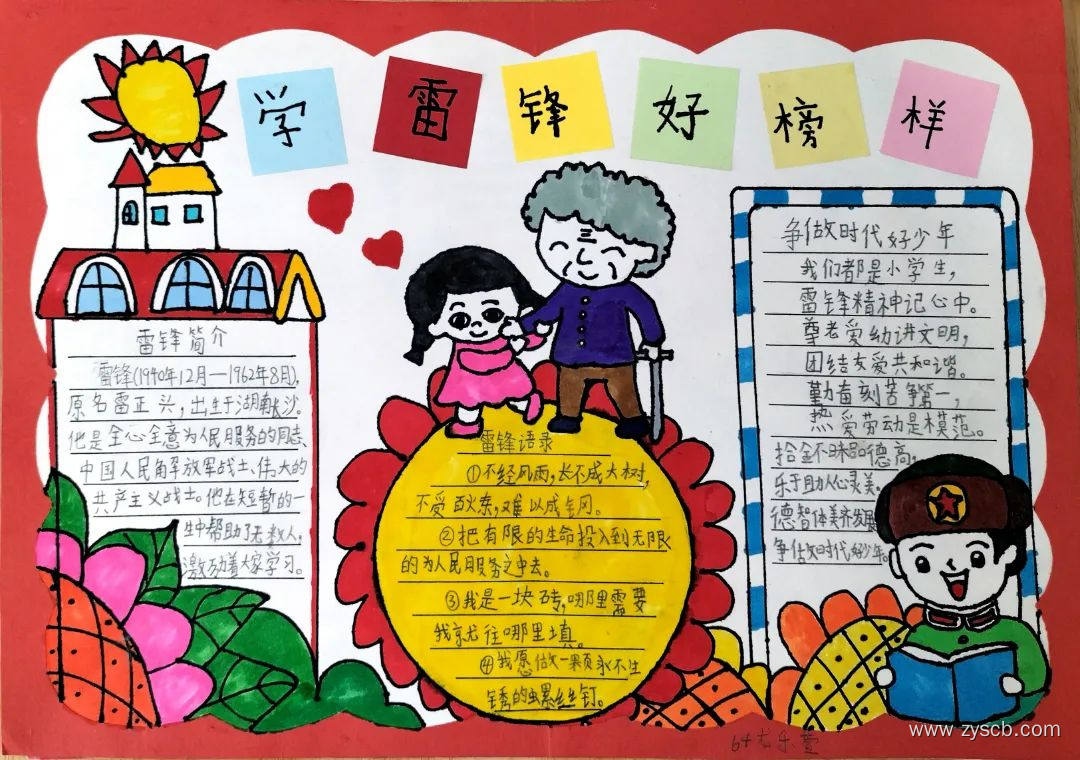 学雷锋好榜样
雷锋简介
雷锋(1940年12月—1962年8月),
原名雷正兴,出生于湖南长沙。
他是全心全意为人民服务的同志、
中国人民解放军战士、伟大的
共产主义战士。他在短暂的一
生中帮助了无数人,
激励着大家学习。
雷锋语录
①不经风雨,长不成大树,
不受百炼,难以成钢。
②把有限的生命投入到无限
的为人民服务之中去。
③我是一块砖,哪里需要
我就往哪里填。
④我愿做一颗永不生
锈的螺丝钉。
争做时代好少年
我们都是小学生,
雷锋精神记心中。
尊老爱幼讲文明,
团结友爱共和谐。
勤奋刻苦争第一,
热爱劳动是模范。
拾金不昧品德高,
乐于助人心灵美。
德智体美齐发展
争做时代好少年。
www.zyscb.com